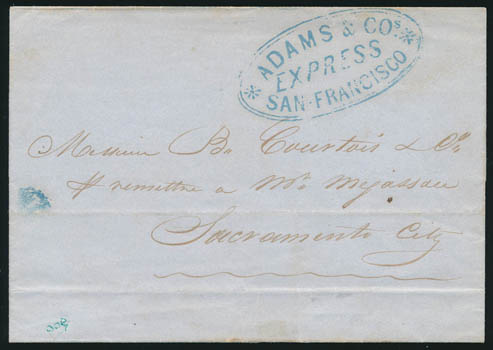 ADAMS & COS
EXPRESS
SAN-FRANCISCO
Messieurs B. Courtois & Co
remettre a Mr
Sacramento City